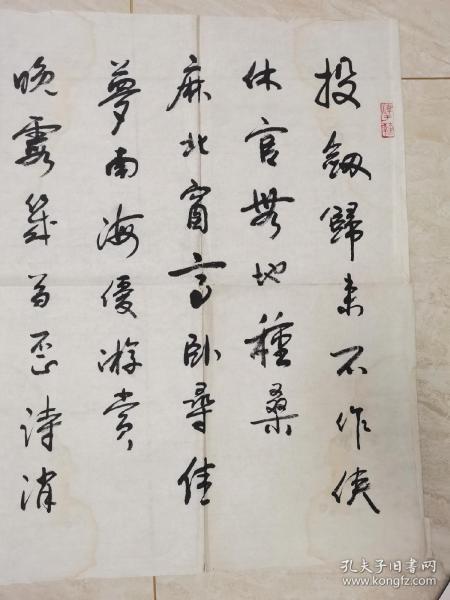 投劔歸来不作侠
休官無地種桑
麻北窗高卧尋佳
夢南海優游賞
晚霞幾首歪詩消
孔夫子旧书网
www.kongfz.com